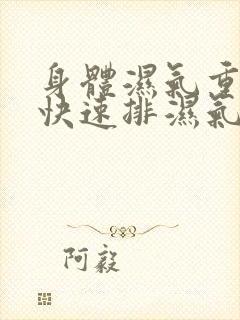 身體濕氣重
快速排濕氣
阿毅